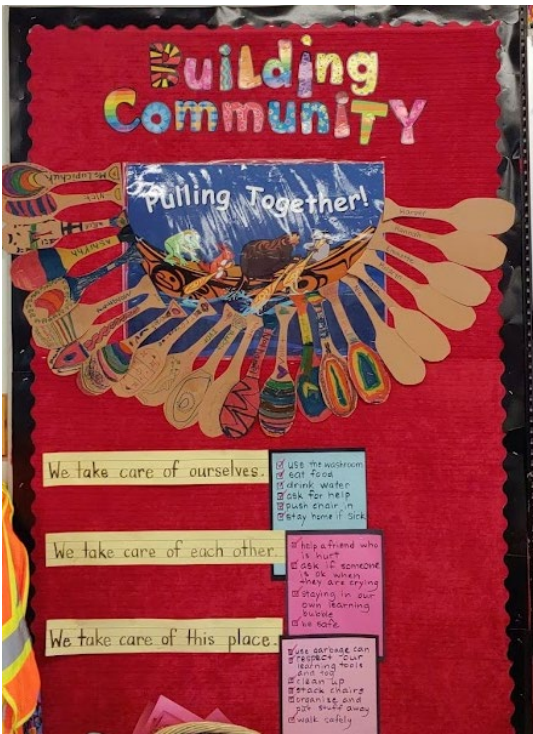 Building
Community
Pulling Together!
Ms. Lupichuk
Harper
Hannah
We take care of ourselves.
use the washroom
eat food
drink water
ask for help
push chair in
stay home if sick
We take care of each other.
help a friend who
is hurt
ask if someone
is ok when
they are crying
staying in our
own learning
bubble
be safe
We take care of this place.
use garbage can
respect our
learning tools
and
clean up
stack chairs
organise and
put stuff away
walk safely